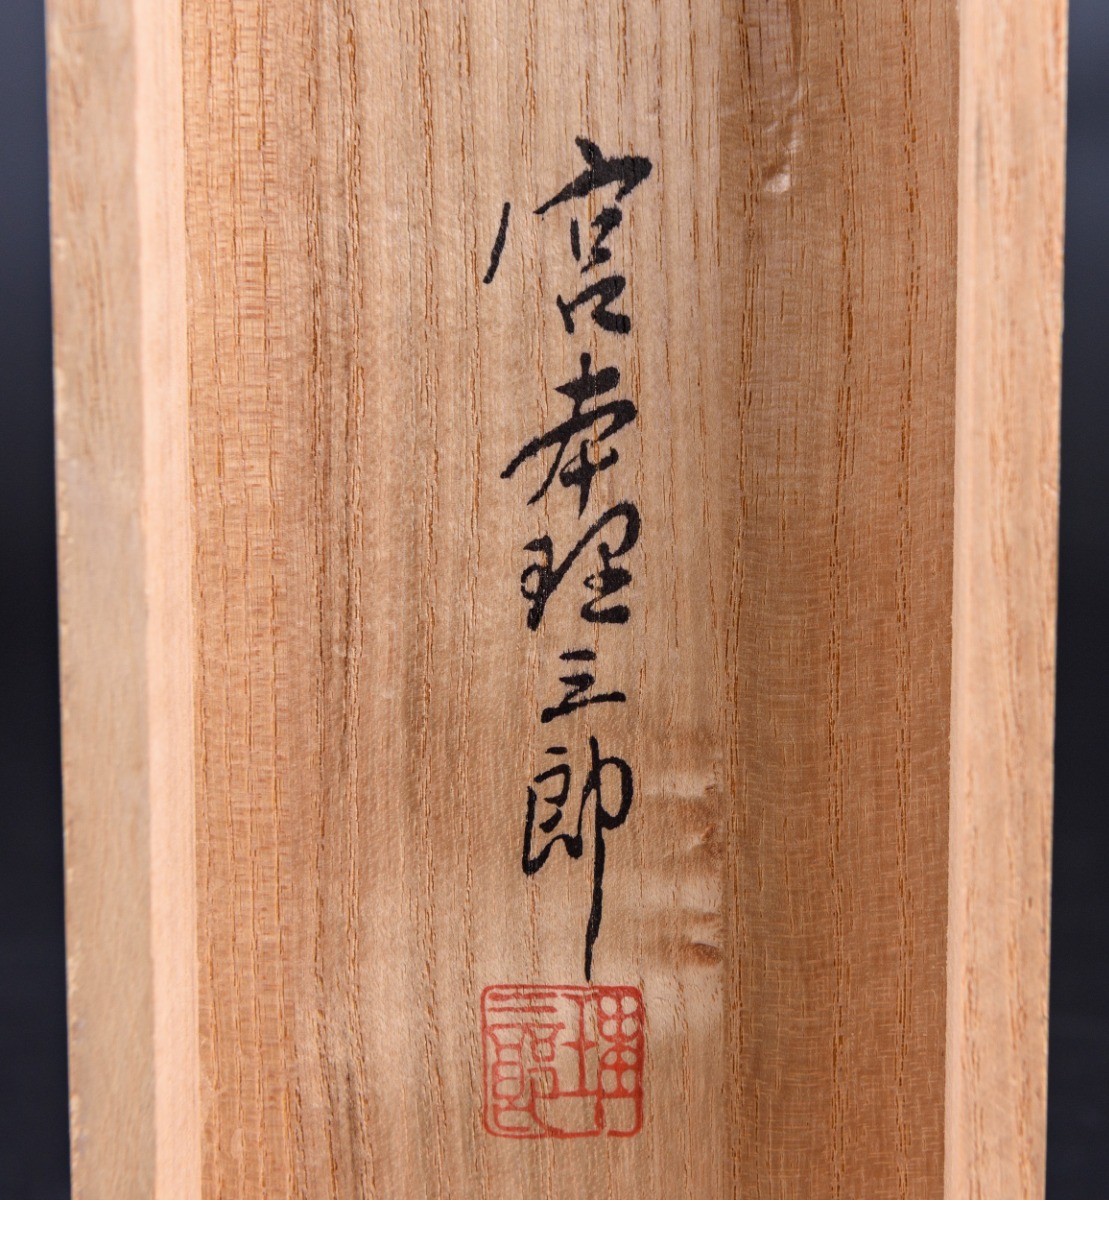 宮本理三郎
理三郎